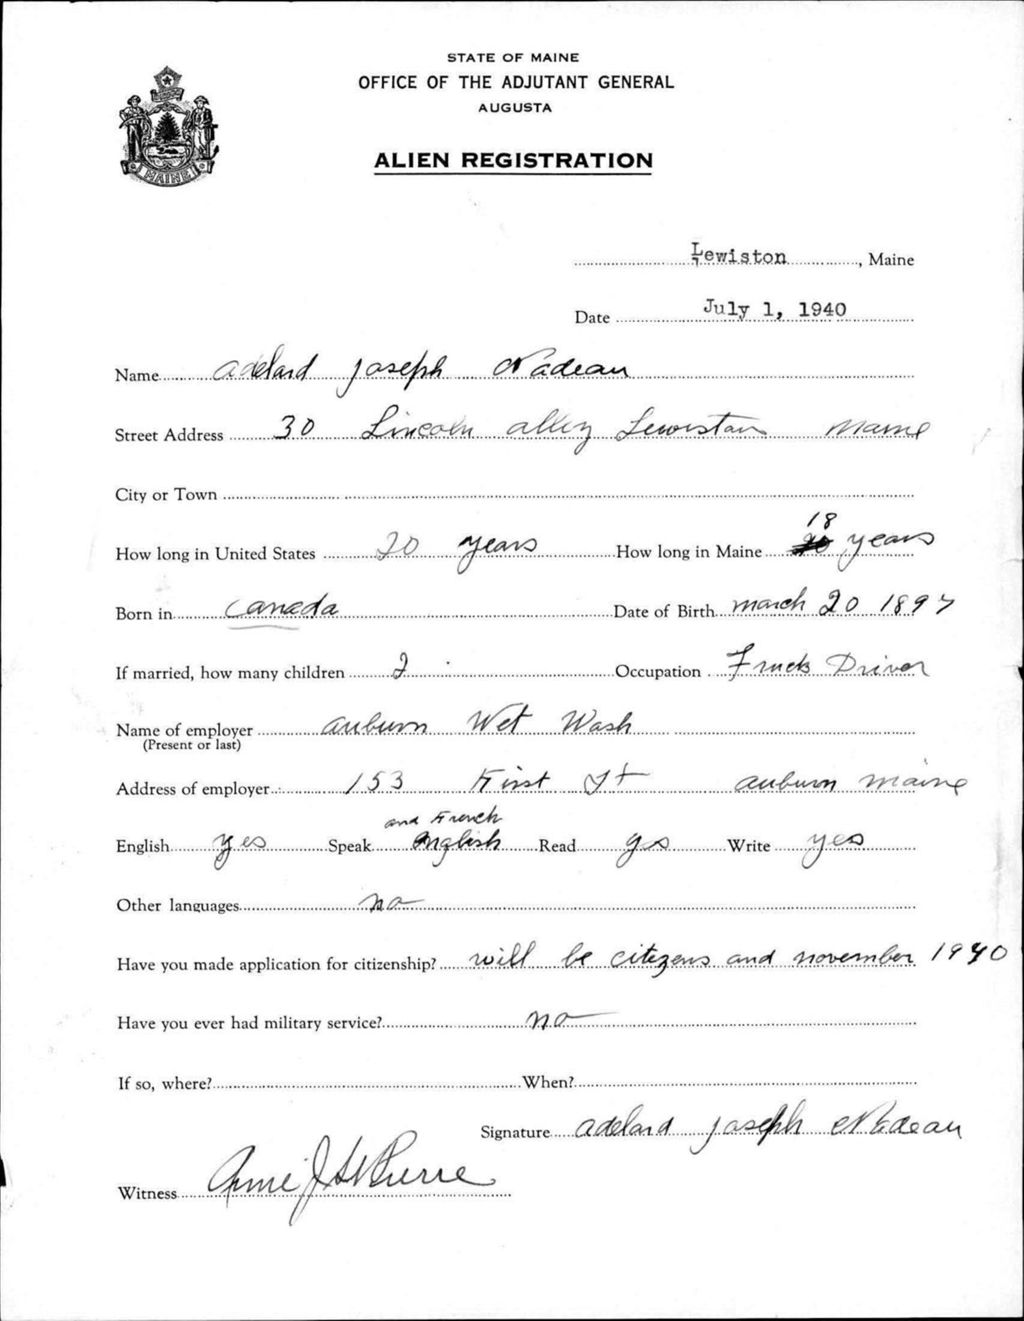 STATE OF MAINE
OFFICE OF THE ADJUTANT GENERAL
AUGUSTA
ALIEN REGISTRATION
MAINE
Lewiston, Maine
Date July 1, 1940
Name adelard Joseph Nadeau
Street Address 30 Lincoln alley Lewiston Maine
City or Town
18
How long in United States 20 years How long in Maine 20 years
Born in Canada Date of Birth march 20 1897
If married, how many children 2 Occupation Truck Driver
Name of employer auburn Wet Wash
(Present or last)
Address of employer 153 First St auburn maine
and French
English yes Speak English Read yes Write yes
Other languages no
Have you made application for citizenship? will be citizens and november 1940
Have you ever had military service? no
If so, where? When?
Signature adelard Joseph Nadeau
Witness J. St Pierre